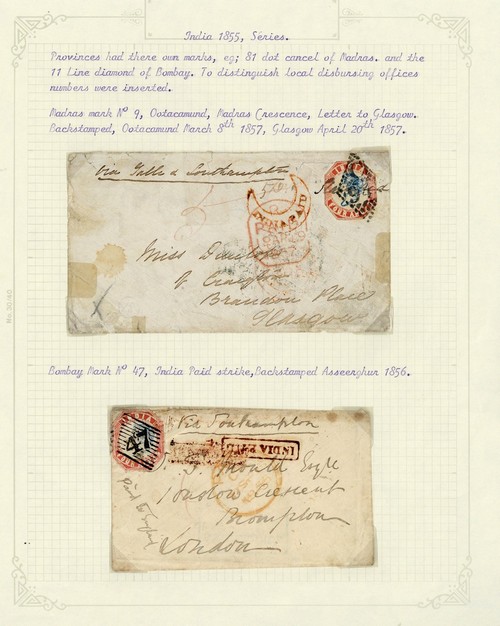 India 1855, Series.
Provinces had there own marks, eg; 81 dot cancel of Madras. and the
11 Line diamond of Bombay. To distinguish local disbursing offices
numbers were inserted.
Madras mark Nº 9, Ootacamund, Madras Crescence, Letter to Glasgow.
Backstamped, Ootacamund March 8th 1857, Glasgow April 20th 1857.
Via Galle & Southampton
INDIA PAID
PAID
Miss
Brandon Place
Glasgow
Bombay Mark Nº 47, India Paid strike, Backstamped Asseerghur 1856.
Via Southampton
47
INDIA PAID
Crescent
Brompton
London
No. 30/40